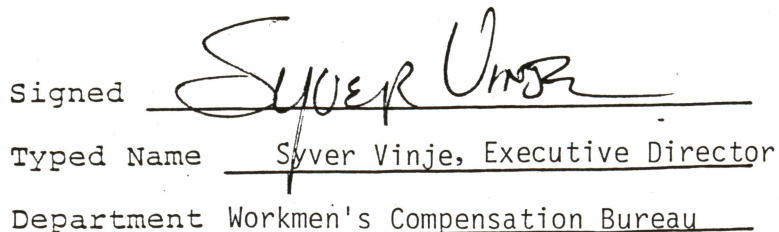 Signed Syver Vinje
Typed Name Syver Vinje, Executive Director
Department Workmen's Compensation Bureau